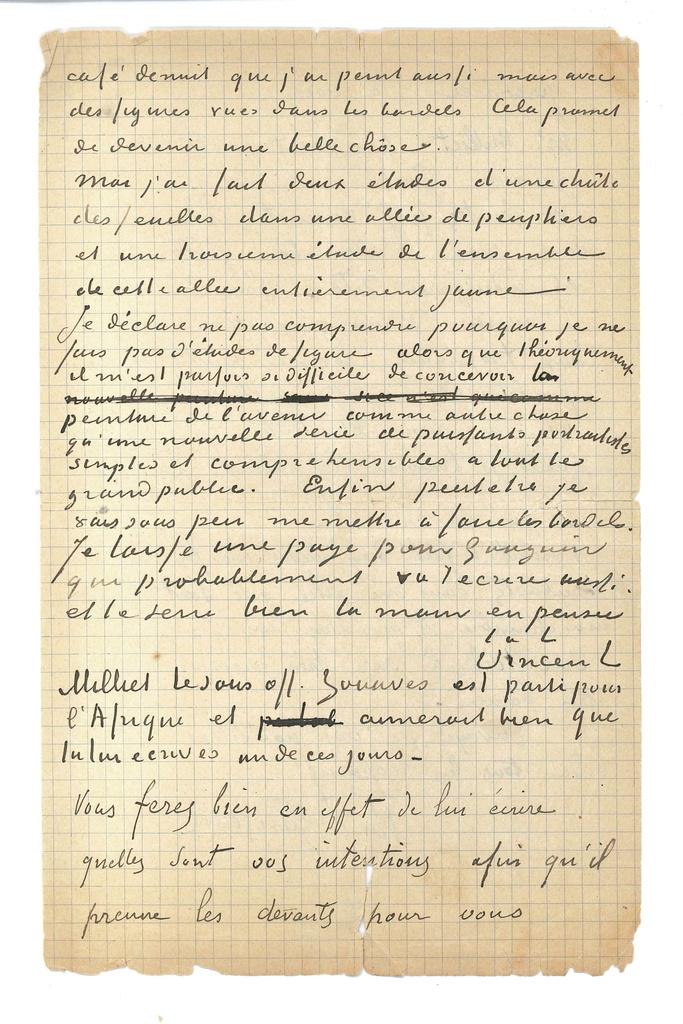 café de nuit que j'ai peint aussi mais avec
des figures vues dans les bordels Cela promet
de devenir une belle chôse.
Moi j'ai fait deux études d'une chûte
des feuilles dans une allée de peupliers
et une troisieme étude de l'ensemble
de cette allée entièrement jaune
Je déclare ne pas comprendre pourquoi je ne
fais pas d'études de figure alors que théoriquement
il m'est parfois si difficile de concevoir la
nouvelle peinture c'est qui comme
peinture de l'avenir comme autre chose
qu'une nouvelle serie de puissants portraitistes
simples et comprehensibles a tout le
grand public. Enfin peutetre je
vais sous peu me mettre à faire les bordels.
Je laisse une page pour Gauguin
qui probablement va t'ecrire aussi.
et te serre bien la main en pensee
t. à t.
Vincent
Milliet le sous off. Zouaves est parti pour
l'Afrique et aimerait bien que
tu lui ecrives un de ces jours –
Vous ferez bien en effet de lui écrire
quelles sont vos intentions afin qu'il
prenne les devants pour vous